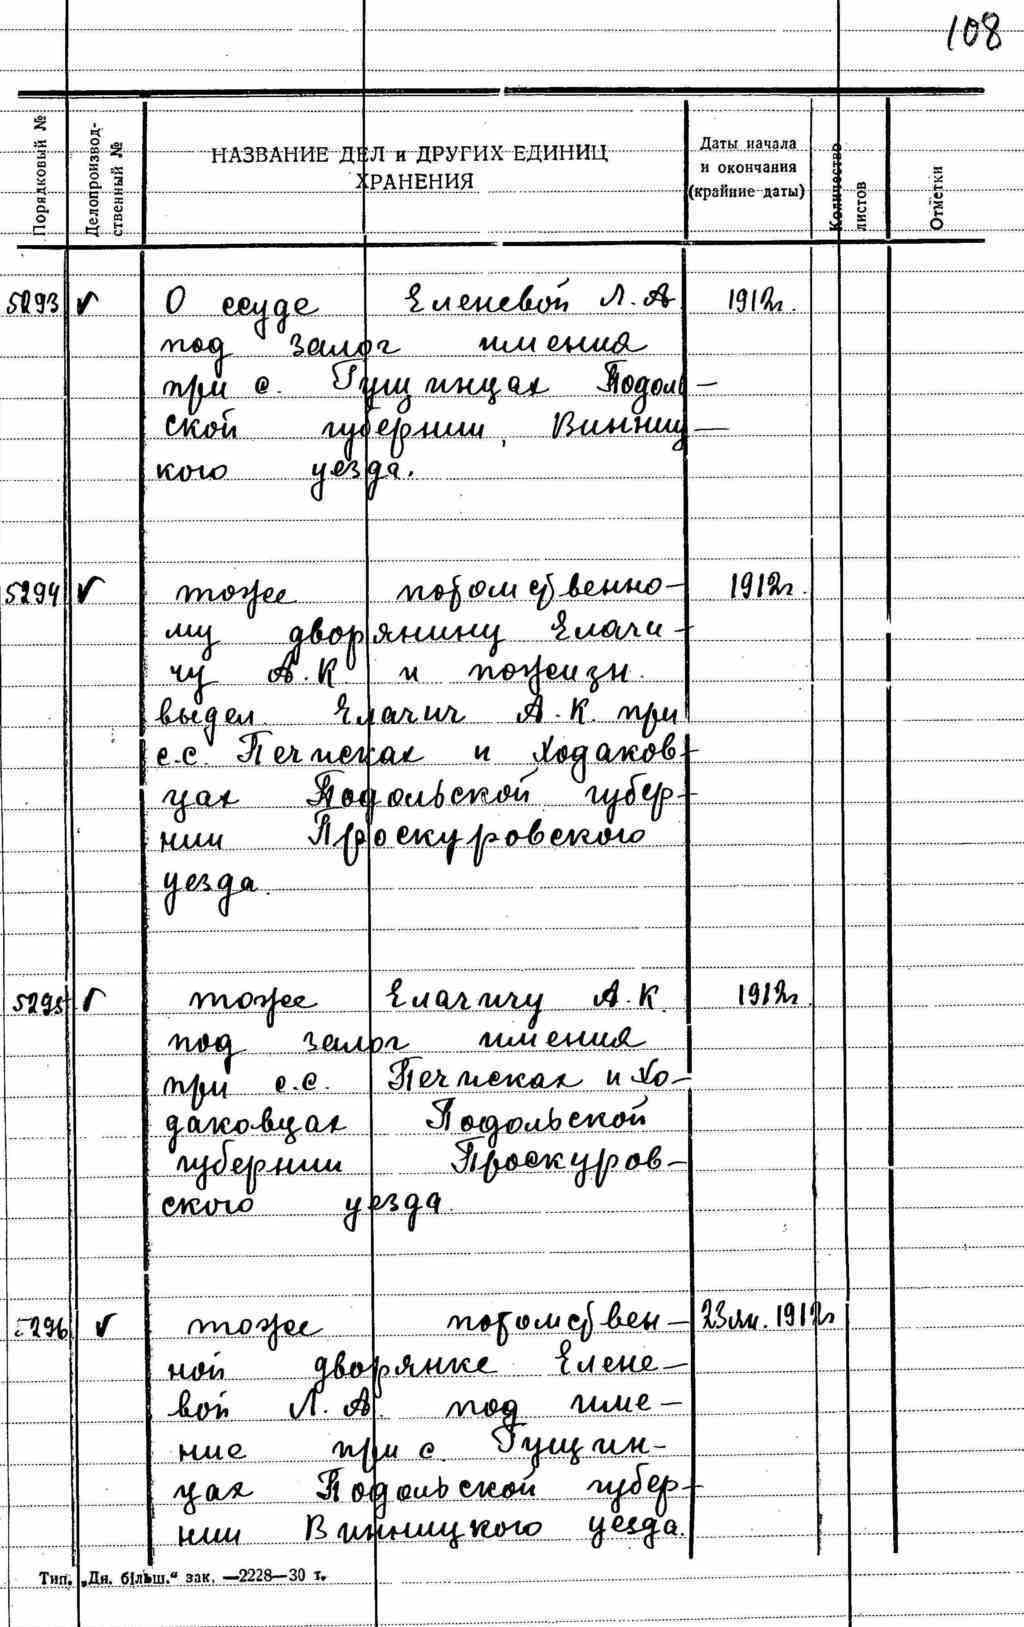 108
Порядковый №
Делопроизвод-
ственный №
НАЗВАНИЕ ДЕЛ и ДРУГИХ ЕДИНИЦ
ХРАНЕНИЯ
Даты начала
и окончания
(крайние даты)
Количество
листов
Отметки
5293 ✓ О ссуде Еленевой Л. А. 1912г.
под залог имения
при с. Гущинцах Подоль-
ской губернии, Винниц-
кого уезда.
5294 ✓ тоже потомственно- 1912г.
му дворянину Елачи-
чу А. К. и пожизн.
выдел. Елачич А. К. при
с.с. Печисках и Ходаков-
цах Подольской губер-
нии Проскуровского
уезда.
5295 ✓ тоже Елачичу А. К. 1912г.
под залог имения
при с.с. Печисках и Хо-
даковцах Подольской
губернии Проскуров-
ского уезда.
5296 ✓ тоже потомствен- 23 1912г
ной дворянке Елене-
вой Л. А. под име-
ние при с. Гущин-
цах Подольской губер-
нии Винницкого уезда.
Тип. „Дн. більш.“ зак. —2228—30 т.